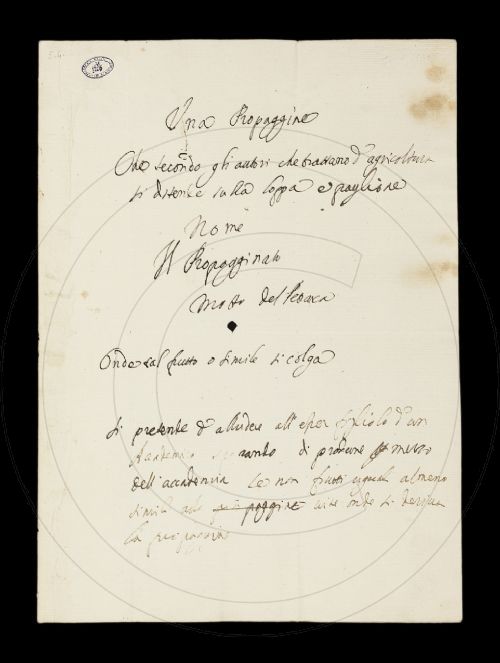 Una Propaggine
Che secondo gli autori che trattano d'agricoltura
si distende sulla loppa e paglione
Nome
Il Propagginato
Motto del Petrarca
Onde tal frutto e simile si colga
Si pretende d'alludere all'esser figliolo d'un
Academico sperando di produrre per mezzo
dell'accademia se non frutti uguali almeno
simili propaggine onde si
la propaggine